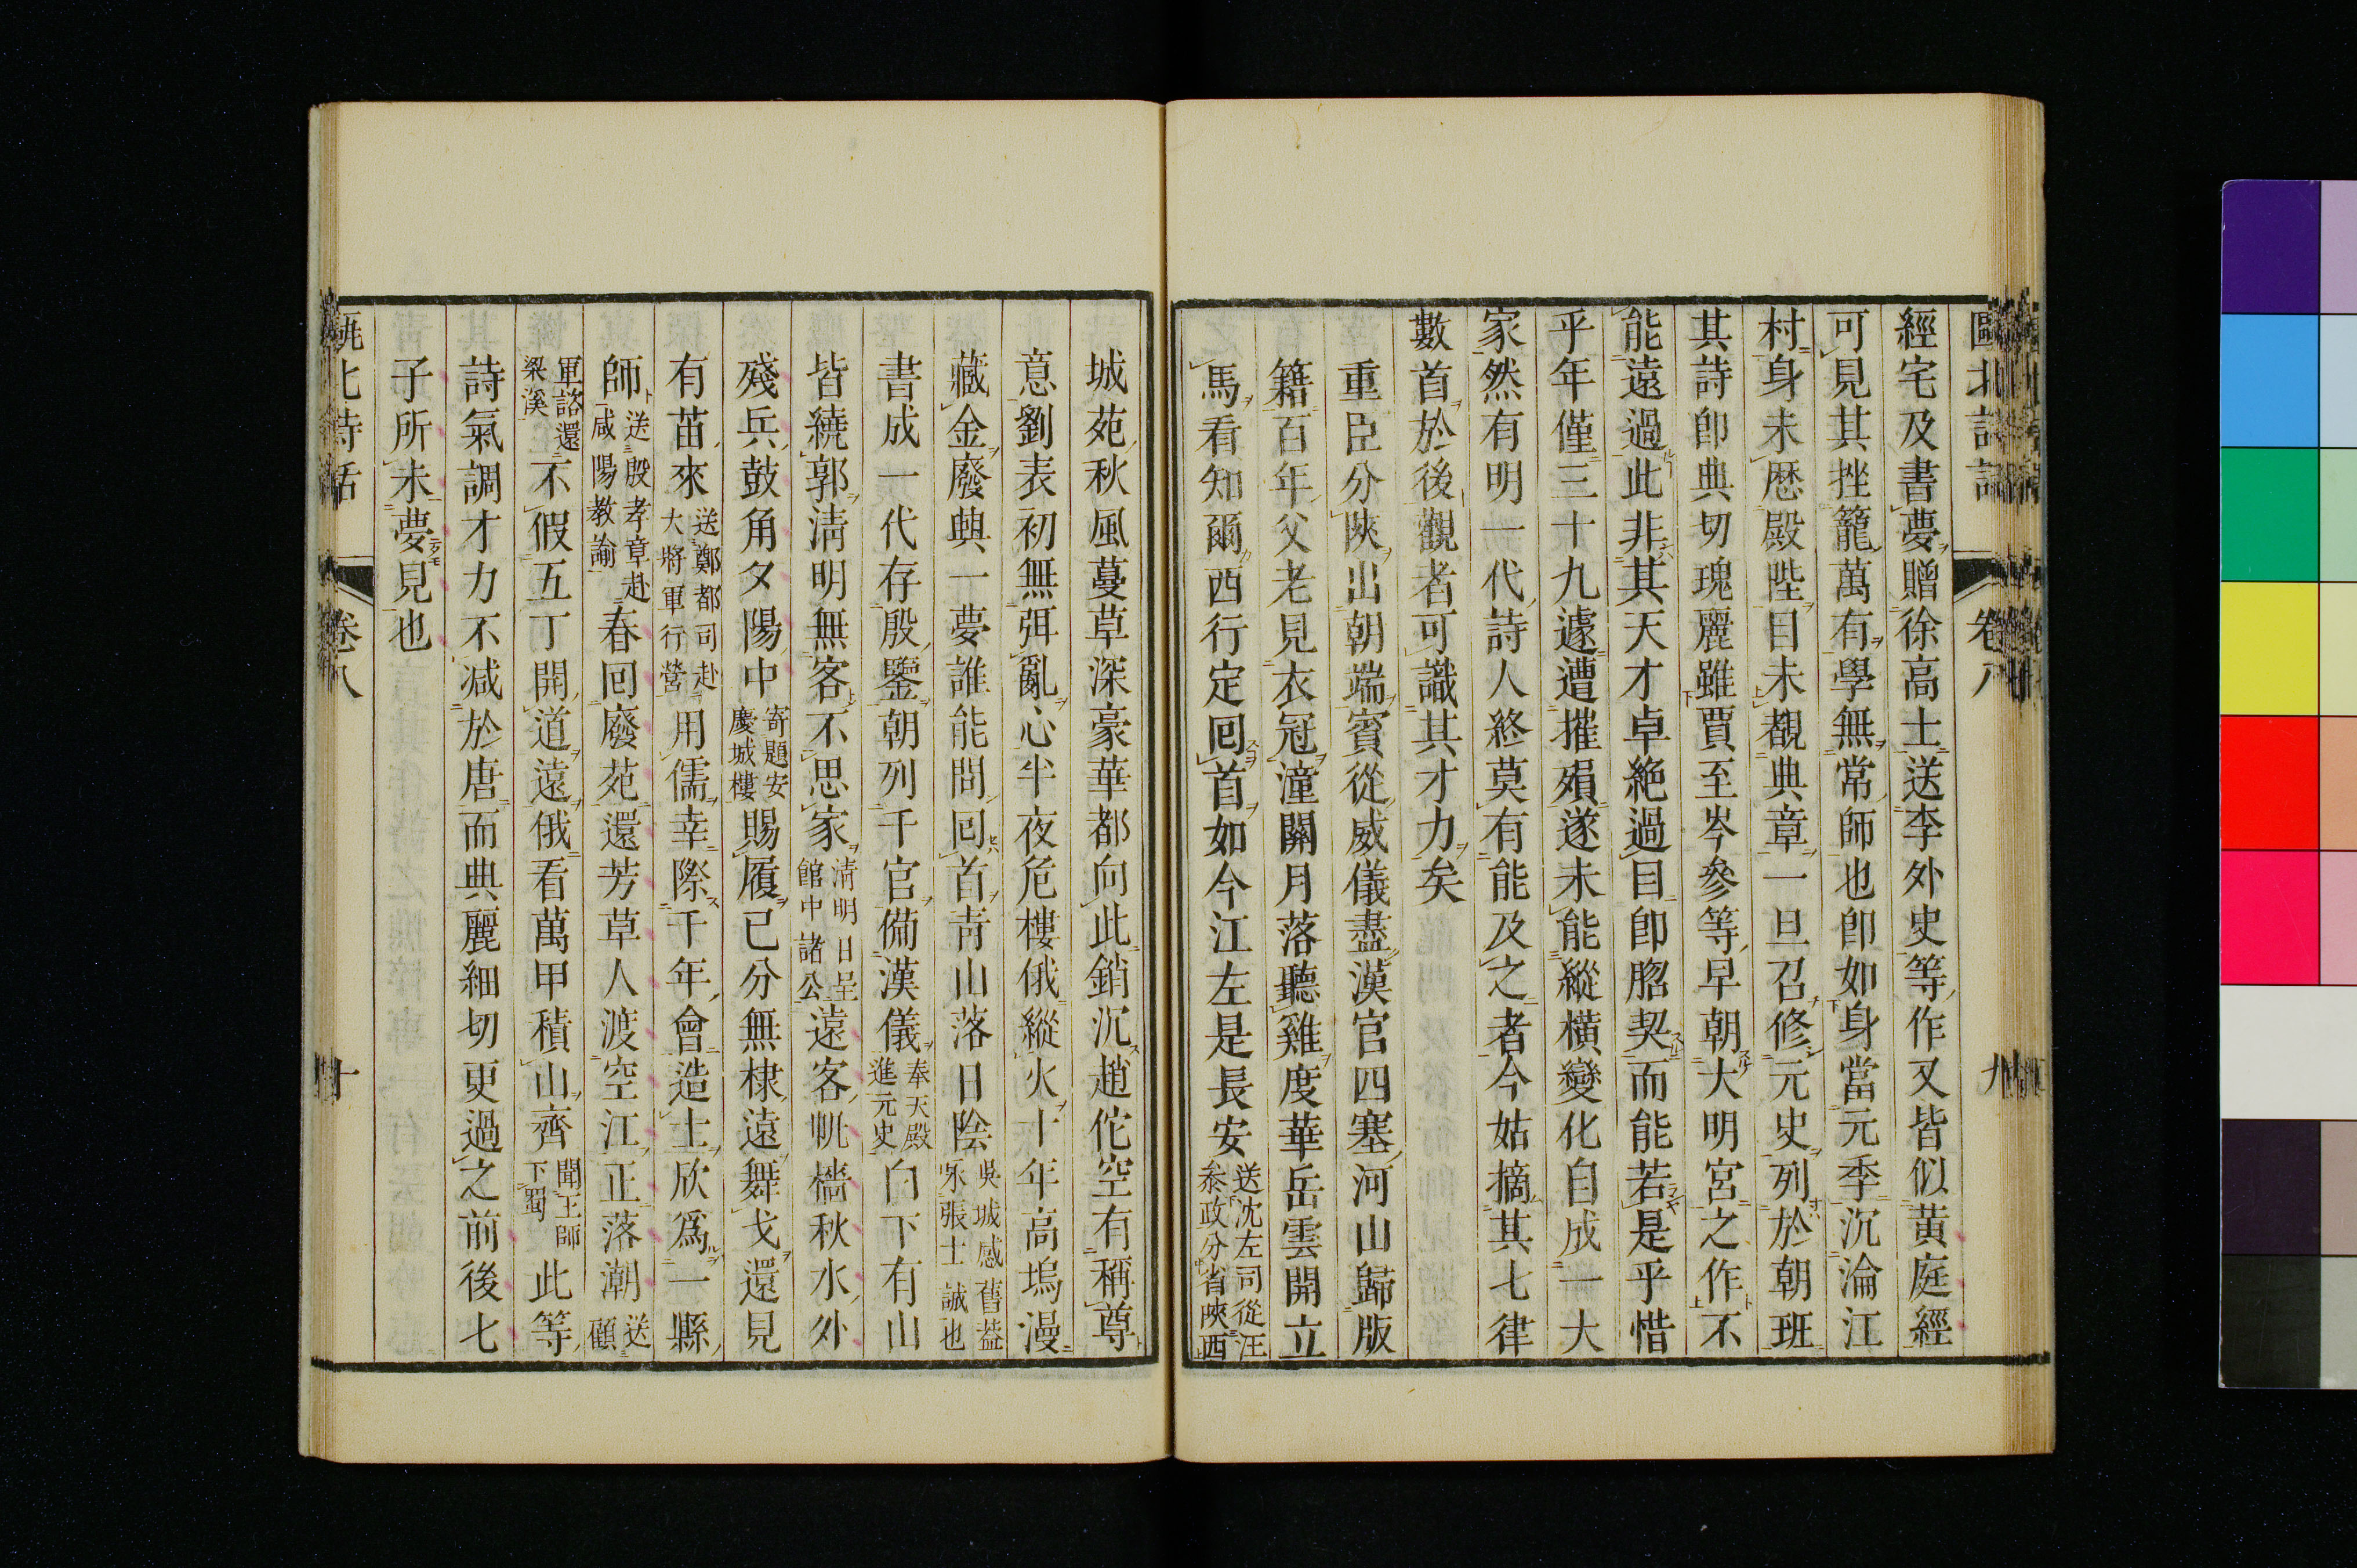 甌北詩話　卷八　九
經宅及書夢贈徐高士送李外史等作又皆似黃庭經
可見其挫籠萬有學無常師也卽如身當元季沉淪江
村身未歷殿陛目未覩典章一旦召修元史列於朝班
其詩卽典切瑰麗雖賈至岑參等早朝大明宮之作不
能遠過此非其天才卓絶過目卽胳契而能若是乎惜
乎年僅三十九遽遭摧殞遂未能縱橫變化自成一大
家然有明一代詩人終莫有能及之者今姑摘其七律
數首於後觀者可識其才力矣
重臣分陝出朝端賓從威儀盡漢官四塞河山歸版
籍百年父老見衣冠潼關月落聽雞度華岳雲開立
馬看知爾西行定回首如今江左是長安送沈左司從汪叅政分省陝西
城苑秋風蔓草深豪華都向此銷沉趙佗空有稱尊
意劉表初無弭亂心半夜危樓俄縱火十年高塢漫
藏金廢興一夢誰能問回首青山落日陰吳城感舊益泵張士誠也
書成一代存殷鑒朝列千官備漢儀奉天殿進元史白下有山
皆繞郭淸明無客不思家淸明日呈館中諸公遠客帆檣秋水外
殘兵鼓角夕陽中寄題安慶城樓賜履已分無棣遠舞戈還見
有苗來送鄭都司赴大將軍行營用儒幸際千年會造士欣爲一縣
師送殷孝章赴咸陽教諭春回廢苑還芳草人渡空江正落潮送顧
軍諮還梁溪不假五丁開道遠俄看萬甲積山齊聞王師下蜀此等
詩氣調才力不減於唐而典麗細切更過之前後七
子所未夢見也
甌北詩話　卷八　十